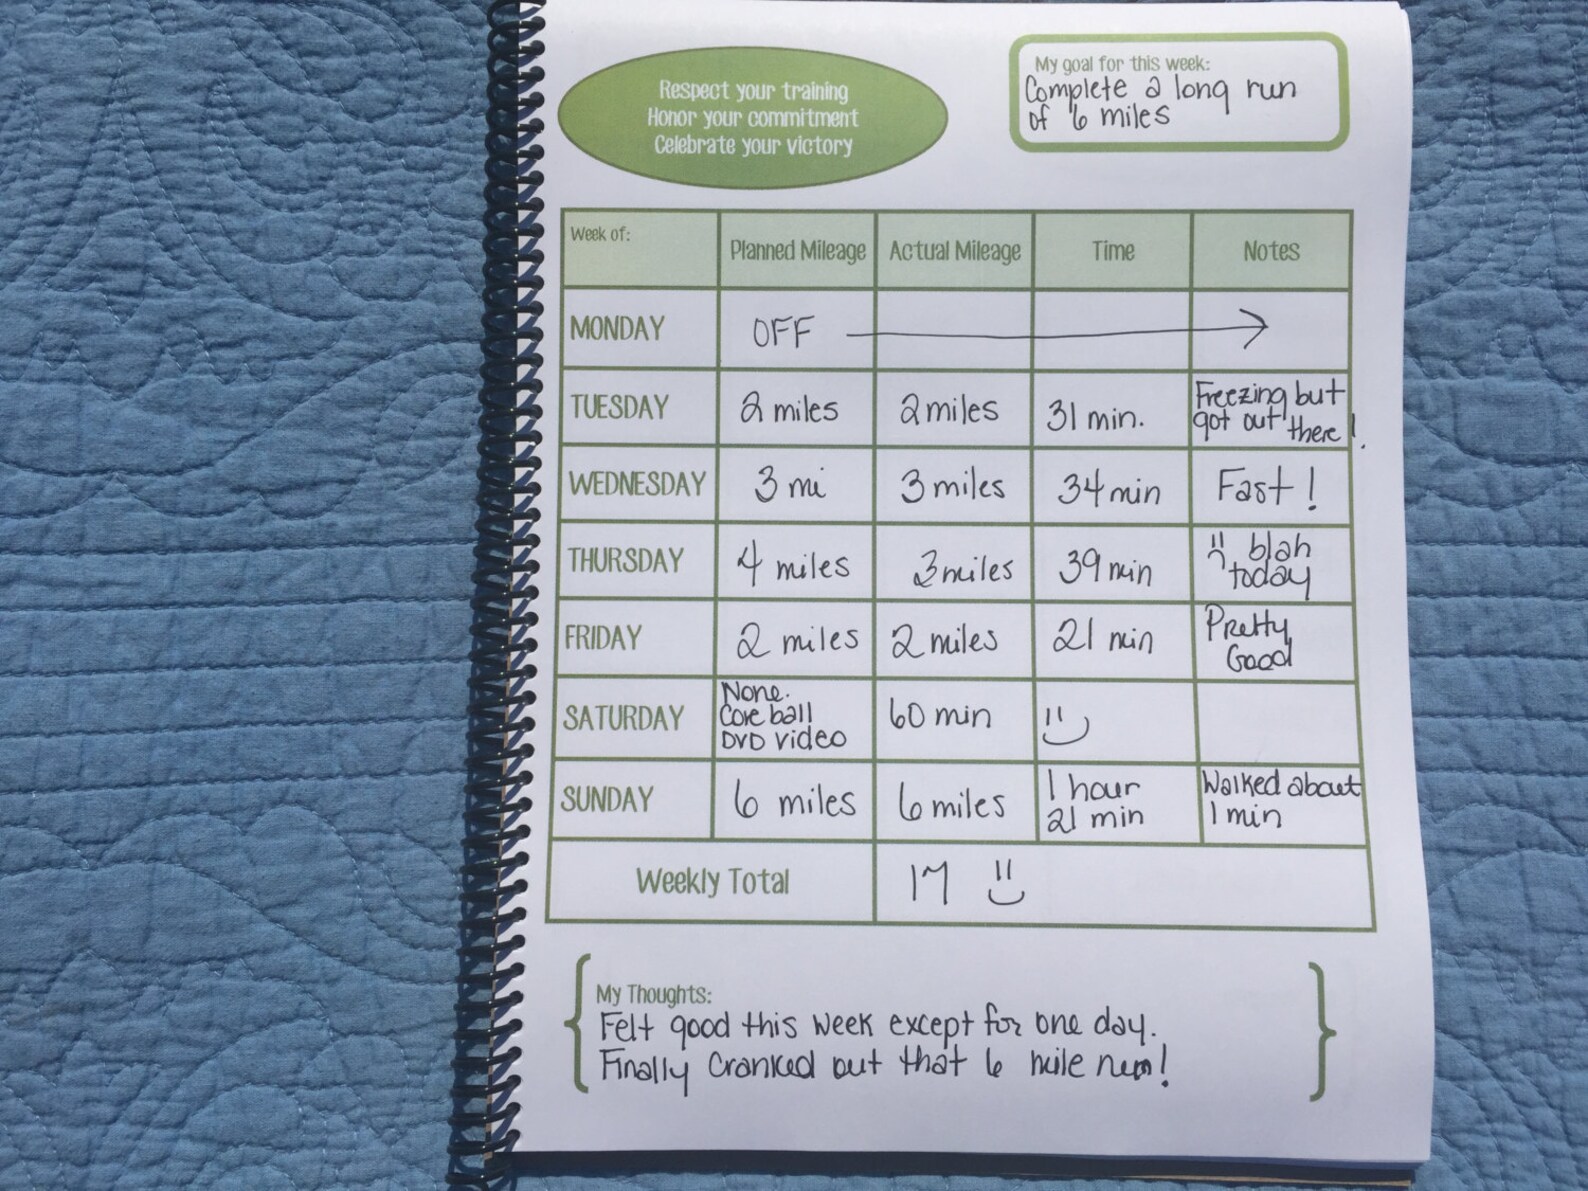 Respect your training
Honor your commitment
Celebrate your victory
My goal for this week:
Complete a long run
of 6 miles
Week of: Planned Mileage Actual Mileage Time Notes
MONDAY OFF
TUESDAY 2 miles 2 miles 31 min. Freezing but
got out there!
WEDNESDAY 3 mi 3 miles 34 min Fast!
THURSDAY 4 miles 3 miles 39 min blah
today
FRIDAY 2 miles 2 miles 21 min Pretty
Good
SATURDAY None.
Core ball
DVD video
60 min
SUNDAY 6 miles 6 miles 1 hour
21 min
Walked about
1 min
Weekly Total 17
My Thoughts:
Felt good this week except for one day.
Finally cranked out that 6 mile run!